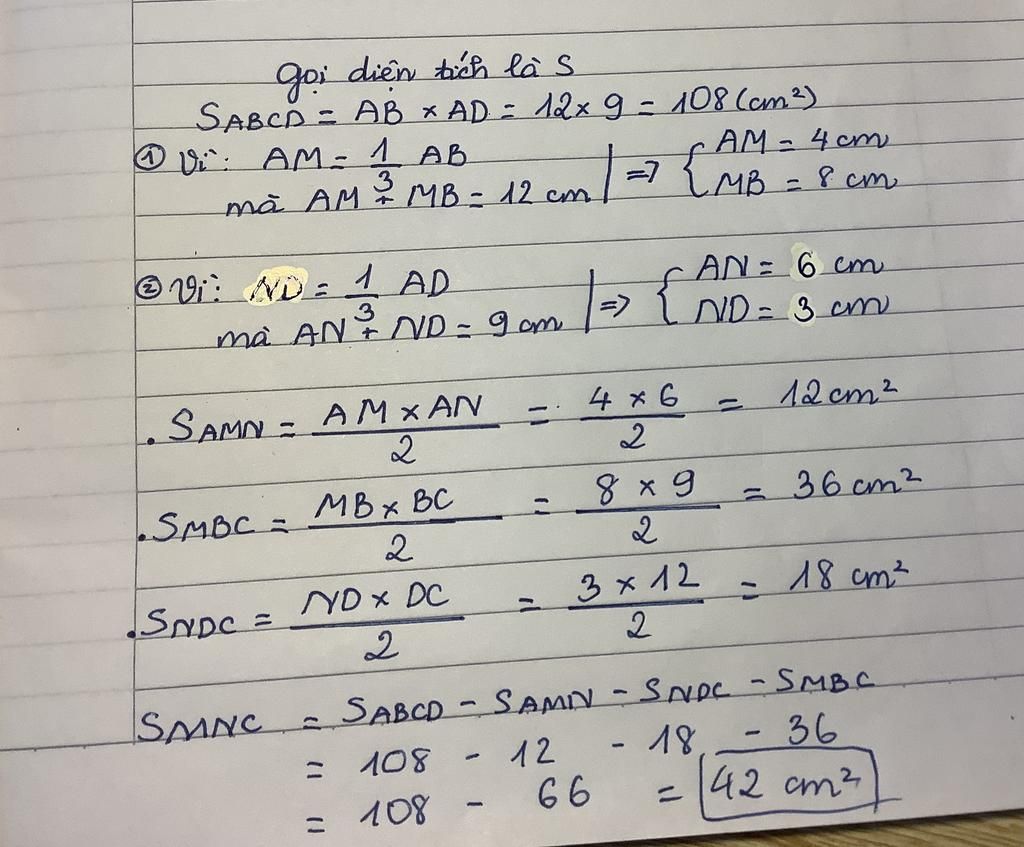 gọi diện tích là S
SABCD = AB × AD = 12 × 9 = 108 (cm²)
① Vì: AM = 1/3 AB
mà AM + MB = 12 cm | => { AM = 4 cm
MB = 8 cm
② Vì: ND = 1/3 AD
mà AN + ND = 9 cm | => { AN = 6 cm
ND = 3 cm
. SAMN = AM × AN / 2 = 4 × 6 / 2 = 12 cm²
. SMBC = MB × BC / 2 = 8 × 9 / 2 = 36 cm²
. SNDC = ND × DC / 2 = 3 × 12 / 2 = 18 cm²
SMNC = SABCD - SAMN - SNDC - SMBC
= 108 - 12 - 18 - 36
= 108 - 66 = 42 cm²